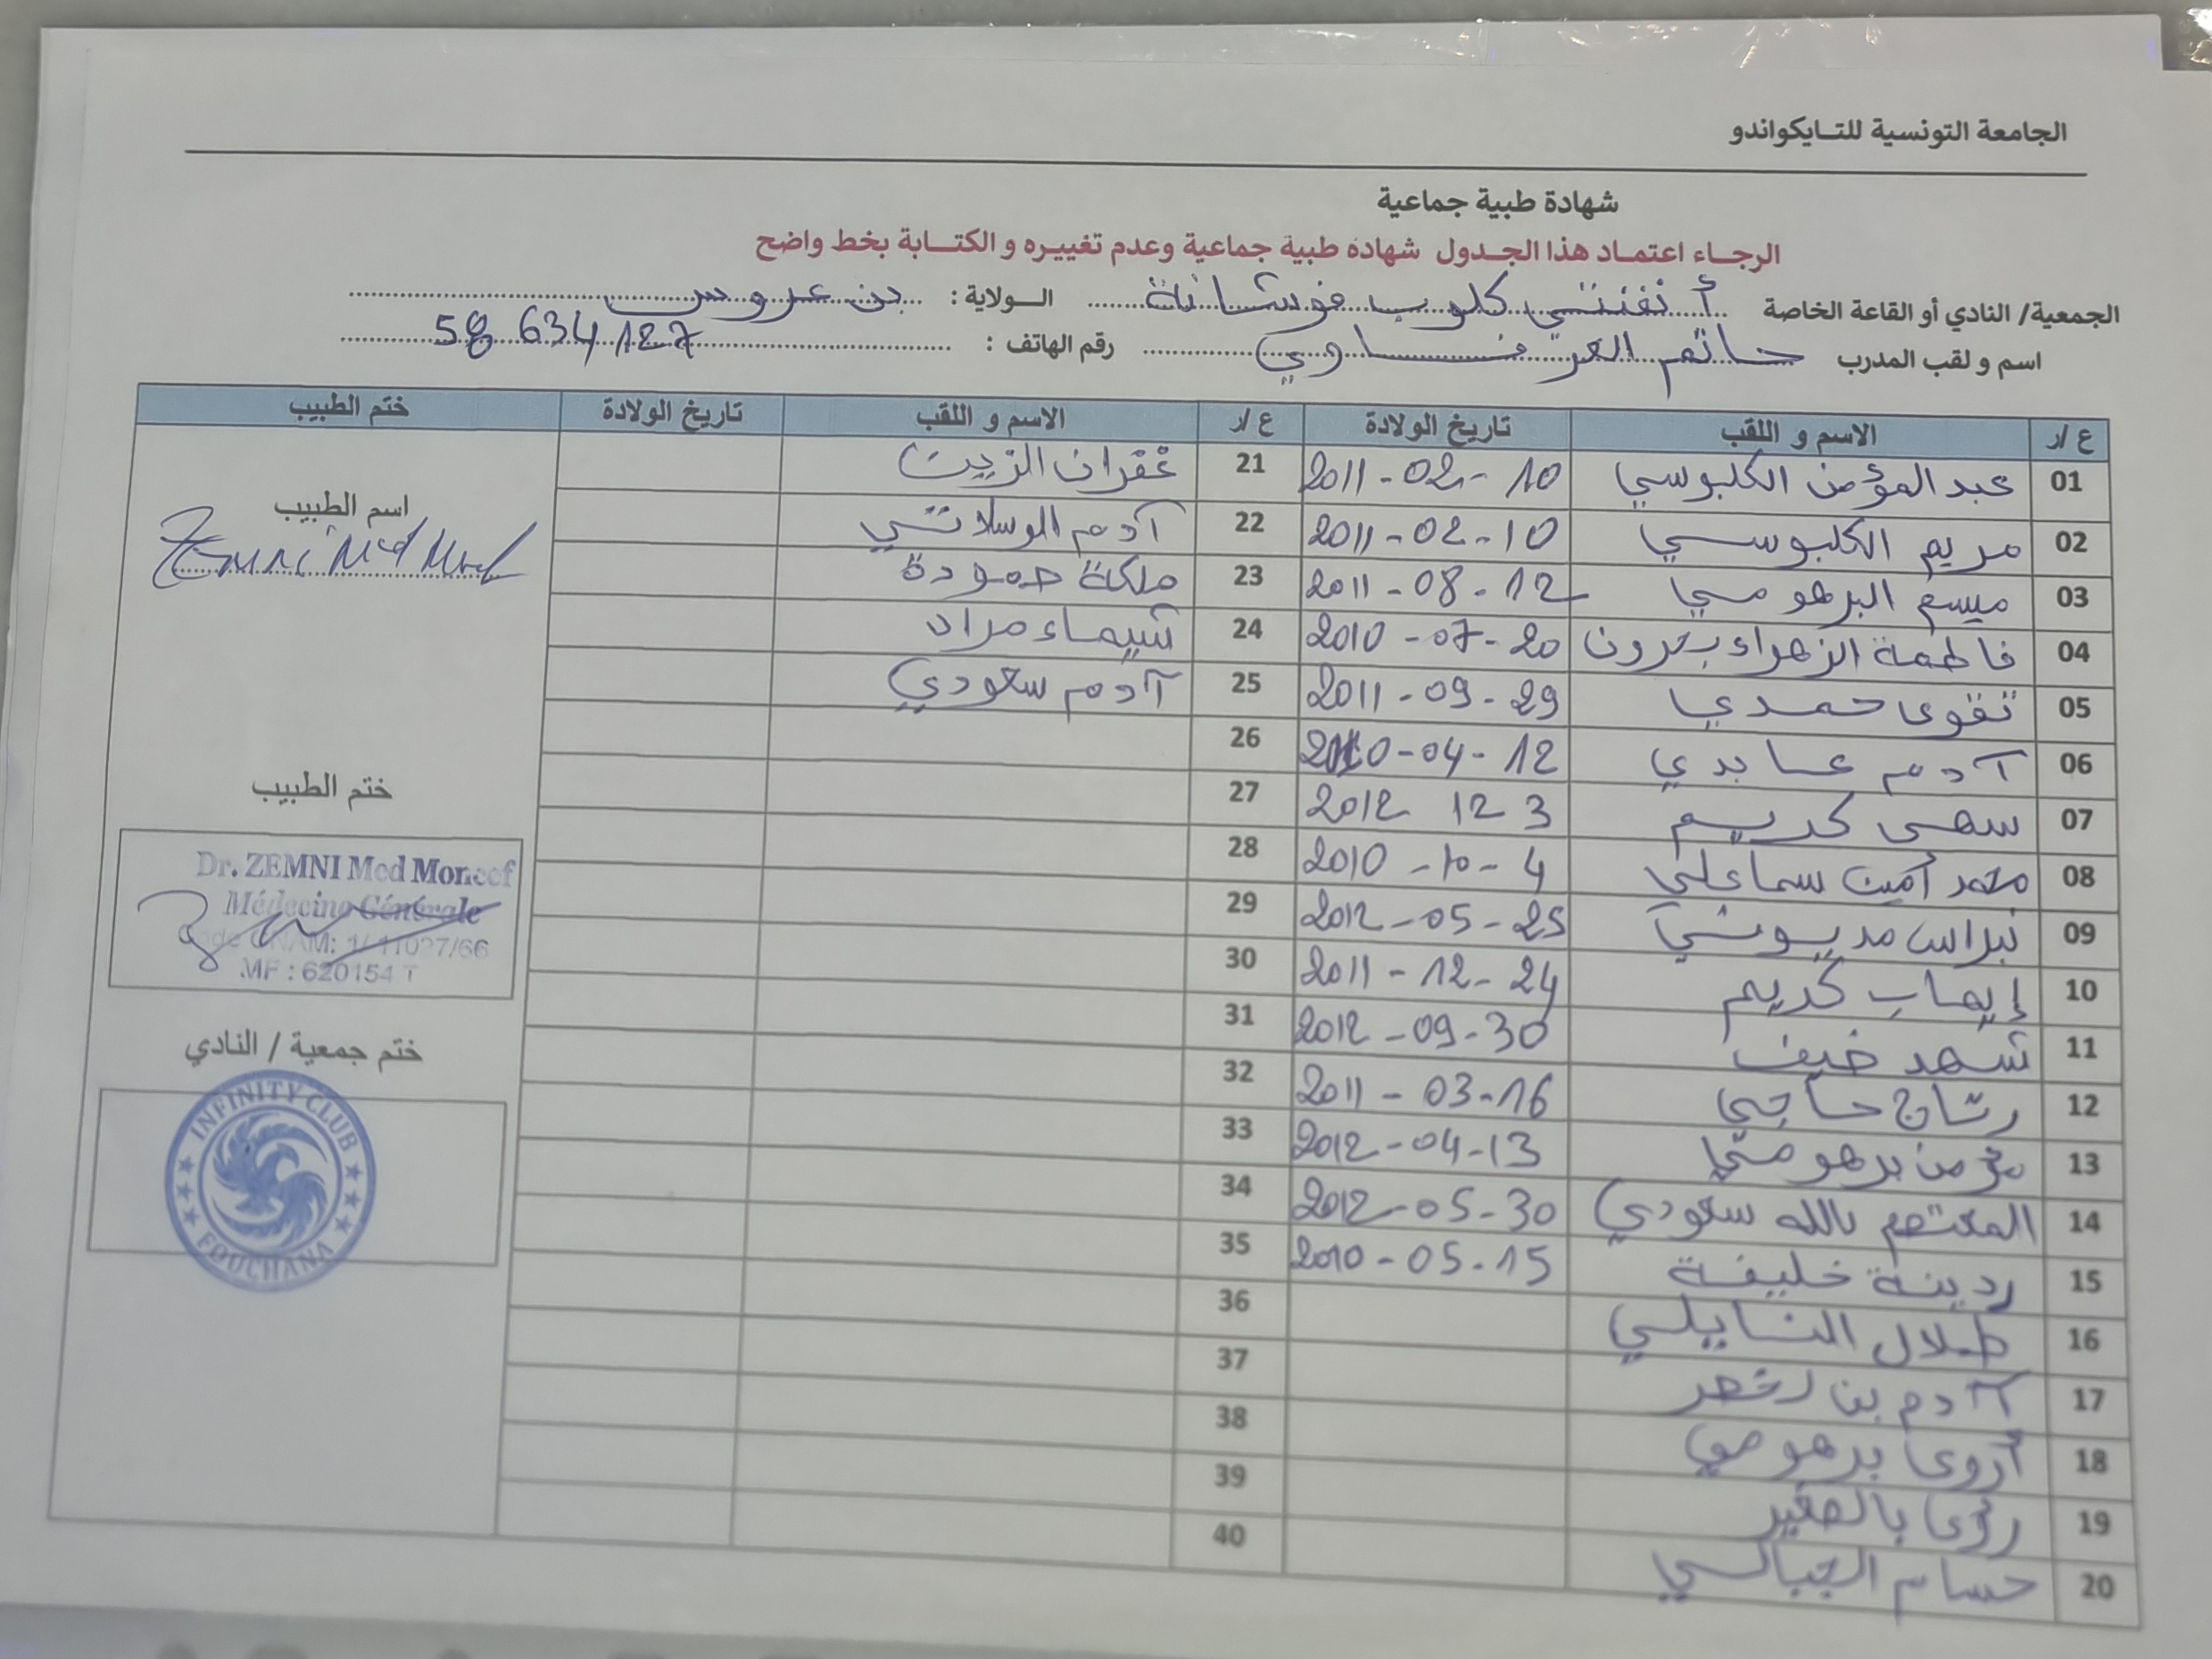 الجامعة التونسية للتايكواندو
شهادة طبية جماعية
الرجاء اعتماد هذا الجدول شهادة طبية جماعية وعدم تغييره و الكتابة بخط واضح
الجمعية/ النادي أو القاعة الخاصة أنفنتي كلوب فوشانة الولاية : بن عروس
اسم و لقب المدرب حاتم العرفاوي رقم الهاتف : 58 634 127
ع /ر الاسم و اللقب تاريخ الولادة ع /ر الاسم و اللقب تاريخ الولادة ختم الطبيب
01 عبد المؤمن الكلبوسي 2011-02-10 21 غفران الزين
02 مريم الكلبوسي 2011-02-10 22 آدم الوسلاتي
03 ميسم البرهومي 2011-08-12 23 ملكة حمودة
04 فاطمة الزهراء 2010-07-20 24 شيماء مراد
05 تقوى حمدي 2011-09-29 25 آدم سعودي
06 آدم عابدي 2010-04-12 26
07 سهى كريم 2012 12 3 27
08 محمد أمين سماعلي 2010-10-4 28
09 نبراس مديوني 2012-05-25 29
10 إيهاب كريم 2011-12-24 30
11 شهد ضيف 2012-09-30 31
12 حاجي 2011-03-16 32
13 مؤمن برهومي 2012-04-13 33
14 المعتصم بالله سعودي 2012-05-30 34
15 ردينة خليفة 2010-05-15 35
16 طلال النايلي 36
17 آدم بن لخضر 37
18 أروى برهومي 38
19 رؤى بالصغير 39
20 حسام الجبالي 40
اسم الطبيب
Zemni Med
ختم الطبيب
Dr. ZEMNI Med Moncef
Médecine Générale
Code CNAM: 1/11027/66
MF : 620154 T
ختم جمعية / النادي
INFINITY CLUB
FOUCHANA